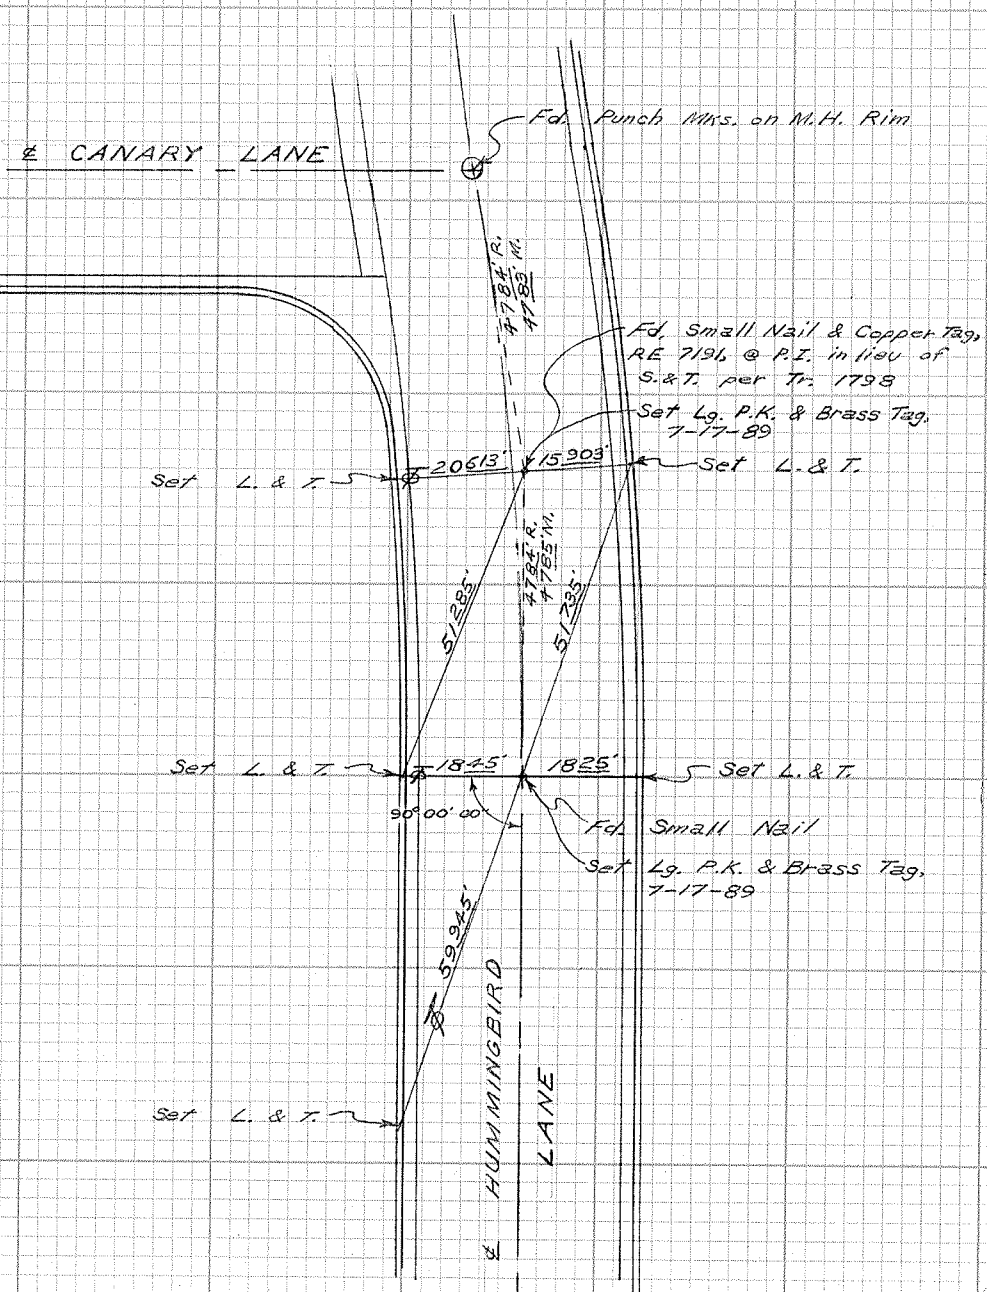 Fd. Punch Mks. on M.H. Rim
℄ CANARY LANE
47 84' R.
47 83' M.
Fd. Small Nail & Copper Tag,
RE 7191, @ P.I. in lieu of
S.&T. per Tr. 1798
Set Lg. P.K. & Brass Tag,
7-17-89
Set L. & T.
20 613'
15 903'
Set L. & T.
47 84' R.
47 85' M.
51 285'
51 735'
Set L. & T.
18 45'
18 25'
Set L. & T.
90° 00' 00"
Fd. Small Nail
Set Lg. P.K. & Brass Tag,
7-17-89
59 945'
Set L. & T.
℄ HUMMINGBIRD
LANE